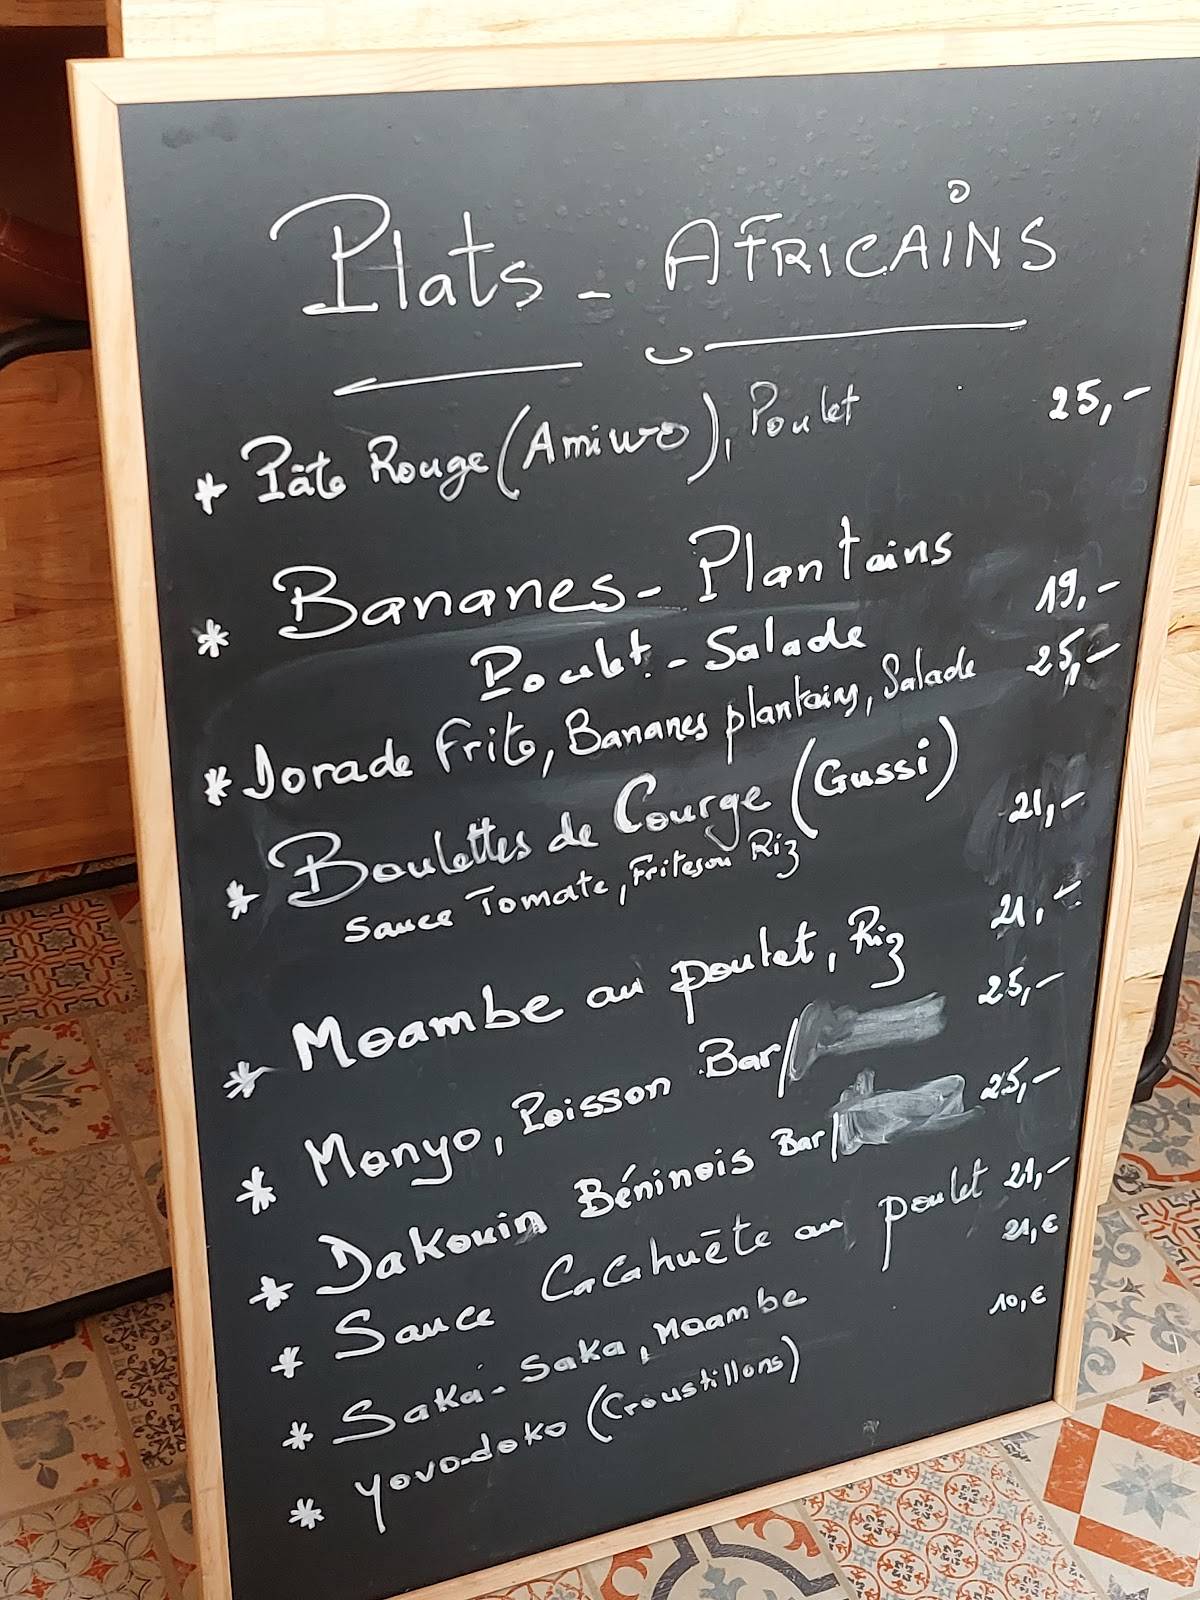 Plats - AFRICAINS
* Pâte Rouge (Amiwo), Poulet 25,-
* Bananes - Plantains
Poulet - Salade 19,-
* Dorade Frite, Bananes plantains, Salade 25,-
* Boulettes de Courge (Gussi) 21,-
Sauce Tomate, Frites ou Riz
* Moambe au poulet, Riz 21,-
* Monyo, Poisson Bar/ 25,-
* Dakouin Béninois Bar/ 25,-
* Sauce Cacahuète au poulet 21,-
* Saka-Saka, Moambe 21,€
* Yovo-doko (Croustillons) 10,€